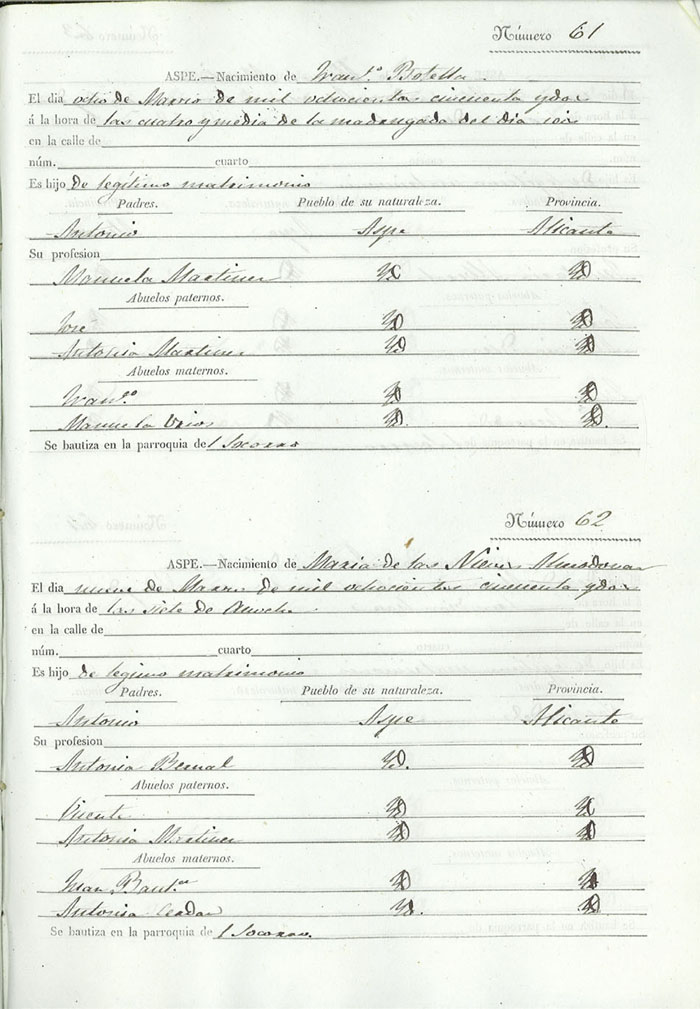 Número 61
ASPE.—Nacimiento de Franc.º Botella.
El dia ocho de Marzo de mil ochocientos cincuenta y dos
á la hora de las cuatro y media de la madrugada del dia
en la calle de
núm. cuarto
Es hijo de legítimo matrimonio
Padres. Pueblo de su naturaleza. Provincia.
Antonio Aspe Alicante
Su profesion
Manuela Martinez
Abuelos paternos.
José
Antonia Martinez
Abuelos maternos.
Franc.º
Manuela
Se bautiza en la parroquia del Socorro
Número 62
ASPE.—Nacimiento de Maria de las Nieves Almodovar
El dia nueve de Marzo de mil ochocientos cincuenta y dos
á la hora de las siete de
en la calle de
núm. cuarto
Es hijo de legimo matrimonio
Padres. Pueblo de su naturaleza. Provincia.
Antonio Aspe Alicante
Su profesion
Antonia Bernal
Abuelos paternos.
Vicente
Antonia Martinez
Abuelos maternos.
Juan Baut.ta
Antonia Cerdan
Se bautiza en la parroquia del Socorro.